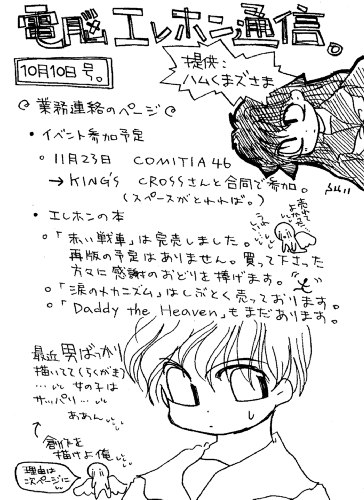 電脳エレホン通信。
10月10日号。
提供:
ハムくまずさま
業務連絡のページ
・イベント参加予定
○ 11月23日 COMITIA46
→ KING'S CROSSさんと合同で参加。
(スペースがとれれば。)
・エレホンの本
○「赤い戦車」は完売しました。
再版の予定はありません。買って下さった
方々に感謝のおどりを捧げます。
○「涙のメカニズム」はしぶとく売っております。
○「Daddy the Heaven」もまだあります。
最近男ばっかり
描いてて(らくがき)
…女の子は
サッパリ…
ああん
創作を
描けよ俺
理由は
次ページに